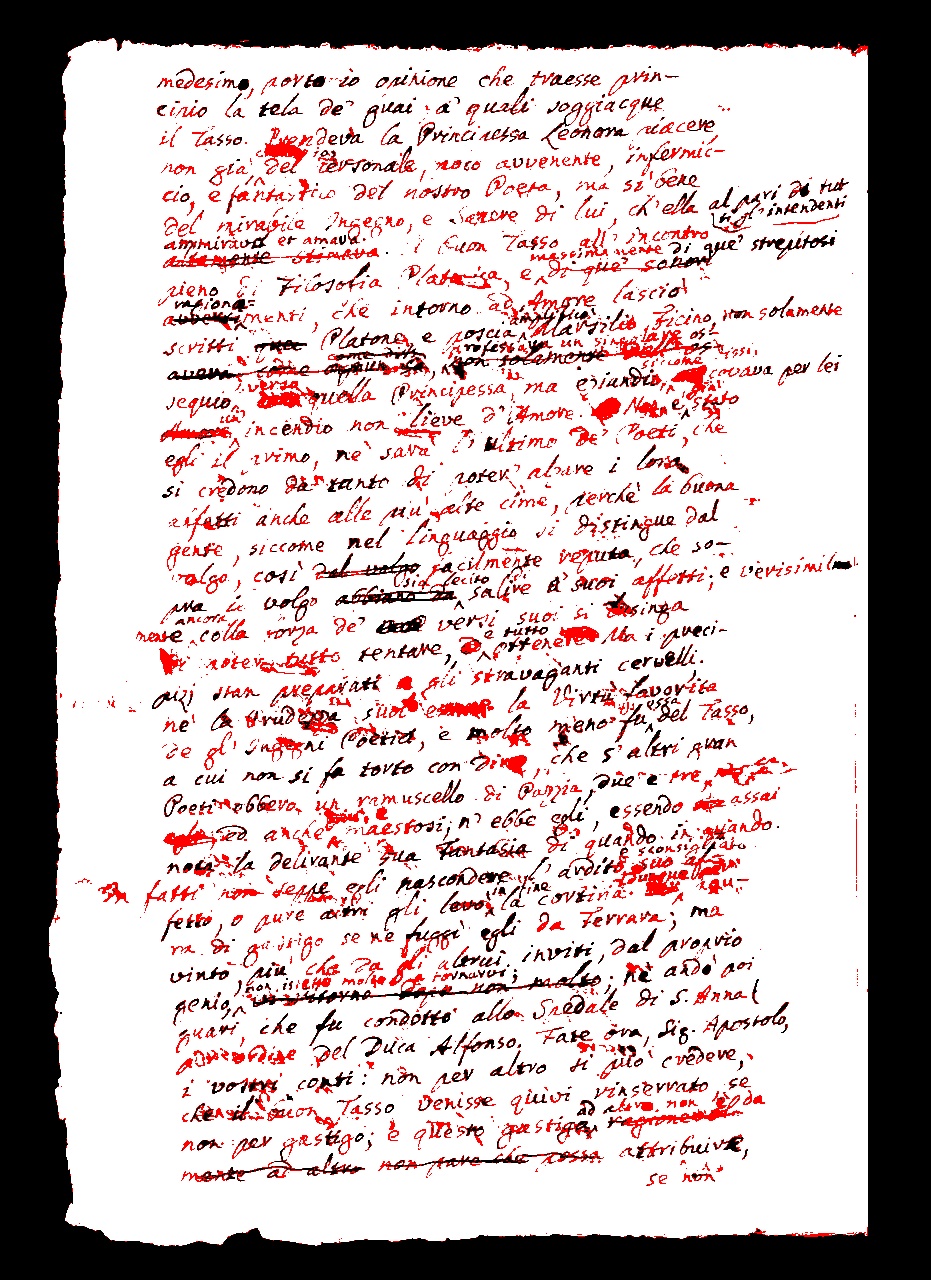 medesimo, porto io opinione che traesse prin-
cipio la tela de' guai a' quali soggiacque
il Tasso. Prendeva la Principessa Leonora piacere
non già del personale, poco avvenente, infermic-
cio, e fantastico del nostro Poeta, ma sì bene
del mirabile Ingegno, e Sapere di lui, ch'ella al pari di tut
ti gl'intendenti
ammirava et amava. Il buon Tasso all'incontro
pieno di Filosofia Platonica, e massimamente di que' strepitosi
ragionamenti, che intorno ad Amore lasciò
scritti Platone, e poscia amplificò Marsilio Ficino, non solamente
professava un singolare os-
sequio verso quella Principessa, ma eziandio covava per lei
un incendio non lieve d'Amore. Non è stato
egli il primo, nè sarà l'ultimo de' Poeti, che
si credono da tanto di poter alzare i loro
affetti anche alle più alte cime, perchè la buona
gente, siccome nel linguaggio si distingue dal
volgo, così facilmente reputa, che so-
pra il volgo sia lecito salire a' suoi affetti; e verisimil
mente ancora colla forza de' versi suoi si lusinga
di poter tutto tentare, e tutto ottenere. Ma i preci-
pizj stan preparati a gli stravaganti cervelli.
nè la Prudenza suol la Virtù favorita
de gl'Ingegni Poetici, e molto meno fu essa del Tasso,
a cui non si fa torto con dire, che s'altri gran
Poeti ebbero un ramuscello di Pazzia, due e tre
ed anche più maestosi, n'ebbe egli, essendo assai
nota la delirante sua Fantasia di quando in quando.
In fatti non seppe egli nascondere l'ardito e sconsigliato suo af-
fetto, o pure altri gli levò in fine la cortina.
ra di gastigo se ne fuggì egli da Ferrara; ma
vinto più che da gli altrui inviti, dal proprio
genio, non istette molto a tornarvi; nè andò poi
guari, che fu condotto allo Spedale di S. Anna
per ordine del Duca Alfonso. Fate ora, Sig. Apostolo,
i vostri conti: non per altro si può credere,
che il buon Tasso venisse quivi rinserrato, se
non per gastigo; e questo gastigo ad altro non è da
attribuire,
se non